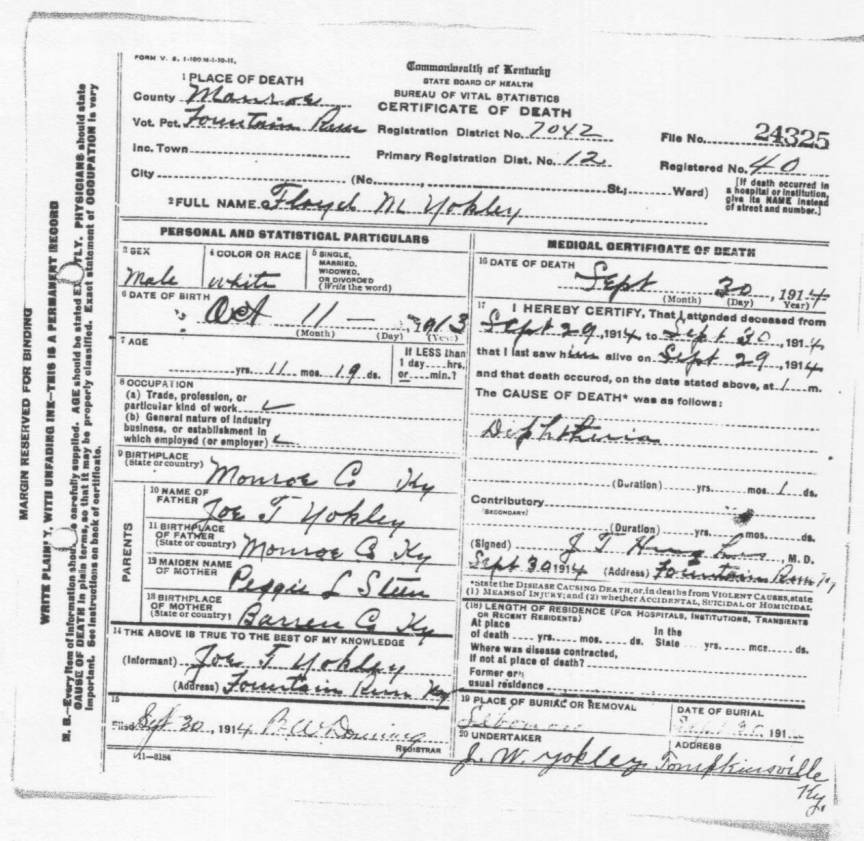 FORM V. S. 1-100 M-1-10-11.
Commonwealth of Kentucky
STATE BOARD OF HEALTH
BUREAU OF VITAL STATISTICS
CERTIFICATE OF DEATH
1 PLACE OF DEATH
County Monroe
Vot. Pct. Fountain Run
Registration District No. 7042
File No. 24325
Inc. Town
Primary Registration Dist. No. 12
Registered No. 40
City (No. , St.; Ward)
[If death occurred in a hospital or institution, give its NAME instead of street and number.]
2 FULL NAME Floyd M Yokley
PERSONAL AND STATISTICAL PARTICULARS
3 SEX
Male
4 COLOR OR RACE
White
5 SINGLE, MARRIED, WIDOWED, OR DIVORCED
(Write the word)
6 DATE OF BIRTH
Oct 11 - , 1913
(Month) (Day) (Year)
7 AGE
yrs. 11 mos. 19 ds.
If LESS than 1 day hrs. or min.?
8 OCCUPATION
(a) Trade, profession, or particular kind of work
(b) General nature of industry business, or establishment in which employed (or employer)
9 BIRTHPLACE
(State or country) Monroe Co Ky
PARENTS
10 NAME OF FATHER Joe T Yokley
11 BIRTHPLACE OF FATHER
(State or country) Monroe Co Ky
12 MAIDEN NAME OF MOTHER Peggie L Steen
13 BIRTHPLACE OF MOTHER
(State or country) Barren Co Ky
14 THE ABOVE IS TRUE TO THE BEST OF MY KNOWLEDGE
(Informant) Joe T Yokley
(Address) Fountain Run Ky
15
Filed Sept 30, 1914
REGISTRAR
11-3184
MEDICAL CERTIFICATE OF DEATH
16 DATE OF DEATH
Sept 30, 1914
(Month) (Day) (Year)
17 I HEREBY CERTIFY, That I attended deceased from
Sept 29, 1914 to Sept 30, 1914
that I last saw him alive on Sept 29, 1914
and that death occured, on the date stated above, at 1 m.
The CAUSE OF DEATH* was as follows:
Diphtheria
(Duration) yrs. mos. 1 ds.
Contributory
(SECONDARY)
(Duration) yrs. mos. ds.
(Signed) J T , M. D.
Sept 30 1914 (Address) Fountain Run Ky
*State the DISEASE CAUSING DEATH, or, in deaths from VIOLENT CAUSES, state
(1) MEANS OF INJURY; and (2) whether ACCIDENTAL, SUICIDAL or HOMICIDAL
(18) LENGTH OF RESIDENCE (FOR HOSPITALS, INSTITUTIONS, TRANSIENTS OR RECENT RESIDENTS)
At place of death yrs. mos. ds. In the State yrs. mos. ds.
Where was disease contracted, if not at place of death?
Former or usual residence
19 PLACE OF BURIAL OR REMOVAL
DATE OF BURIAL
191
20 UNDERTAKER
J. W. Yokley
ADDRESS
Tompkinsville Ky.
MARGIN RESERVED FOR BINDING
WRITE PLAINLY, WITH UNFADING INK—THIS IS A PERMANENT RECORD
N. B.—Every item of information should be carefully supplied. AGE should be stated EXACTLY. PHYSICIANS should state
CAUSE OF DEATH in plain terms, so that it may be properly classified. Exact statement of OCCUPATION is very
important. See instructions on back of certificate.